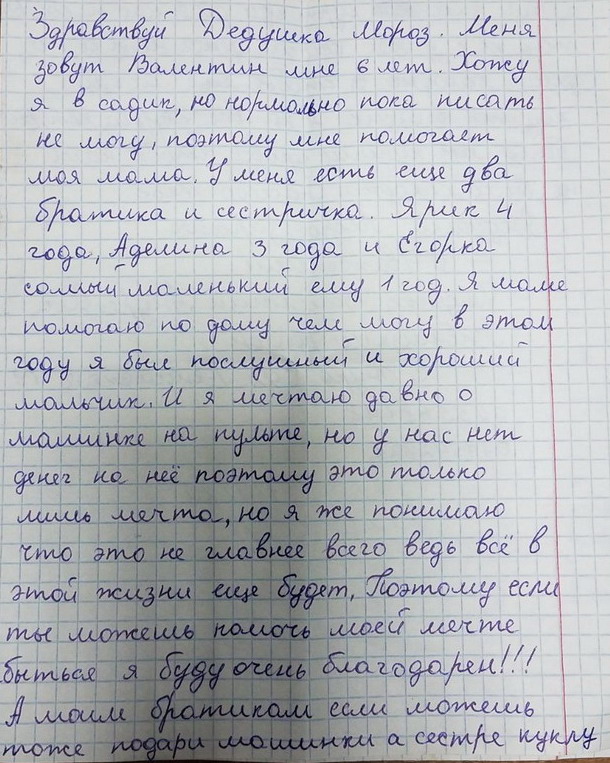 Здравствуй Дедушка Мороз. Меня
зовут Валентин мне 6 лет. Хожу
я в садик, но нормально пока писать
не могу, поэтому мне помогает
моя мама. У меня есть еще два
братика и сестричка. Ярик 4
года, Аделина 3 года и Егорка
самый маленький ему 1 год. Я маме
помогаю по дому чем могу в этом
году я был послушный и хороший
мальчик. И я мечтаю давно о
машинке на пульте, но у нас нет
денег на неё поэтому это только
лишь мечта, но я же понимаю
что это не главнее всего ведь всё в
этой жизни еще будет, Поэтому если
ты можешь помочь моей мечте
сбыться я буду очень благодарен!!!
А моим братикам если можешь
тоже подари машинки а сестре куклу